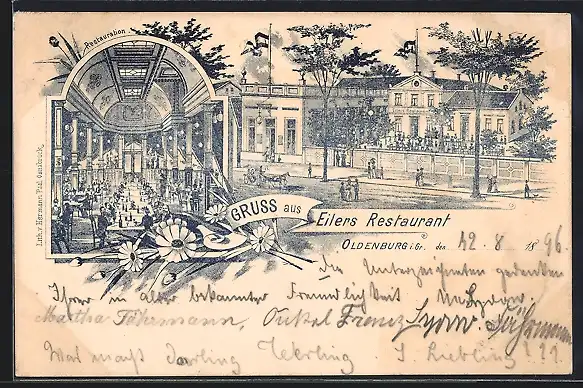 Restauration.
Lith. v. Hermann Piel Osnabrück.
GRUSS aus Eilers Restaurant
OLDENBURG i. Gr. den 12. 8. 1896.
Die Unterzeichneten gedenken
Ihrer in alter bekannter Freundlichkeit
Martha Fährmann, Onkel Franz
Was macht Darling